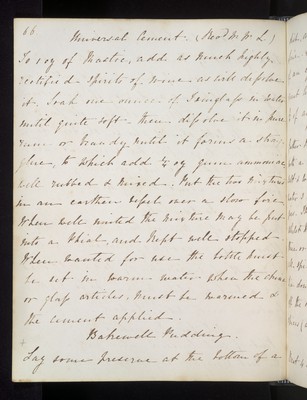 66
Universal Cement. (Recd Mr W. L)
To 1 oz of Mastic, add as much highly
rectified spirits of wine as will dissolve
it. Soak one ounce of Isinglass in water
until quite soft – then dissolve it in pure
rum or brandy until it forms a strong
glue, to which add ¼ oz gum ammoniac
well rubbed & mixed. Put the two mixtures
in an earthen vessel over a slow fire
When well united the mixture may be put
into a Phial, and kept well stopped –
When wanted for use the bottle must
be set in warm water when the china
or glass articles must be warmed &
the cement applied.
Bakewell Pudding.
Lay some preserve at the bottom of a